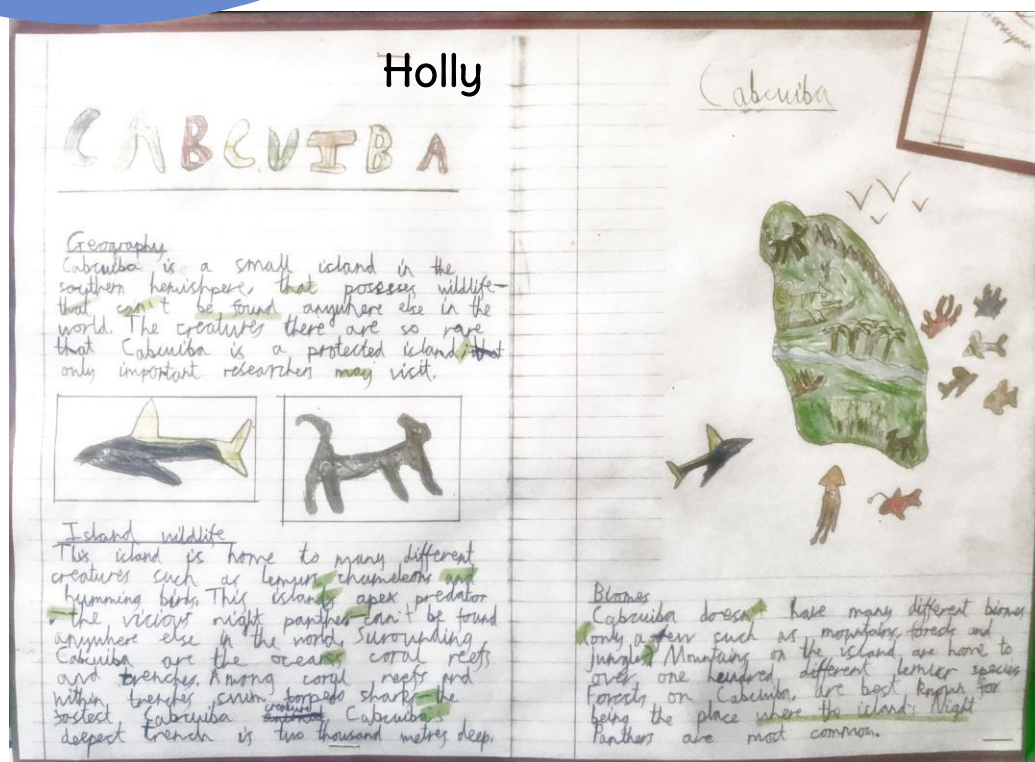 Holly
CABCUIBA
Geography
Cabcuiba is a small island in the
southern hemishpere, that posesses wildlife
that can't be found anywhere else in the
world. The creatures there are so rare
that Cabcuiba is a protected island; that
only important researchers may visit.
Island wildlife
This island is home to many different
creatures such as lemurs, chameleons and
humming birds. This islands apex predator
- the vicious night panther - can't be found
anywhere else in the world. Surounding
Cabcuiba are the oceans coral reefs
and trenches. Among coral reefs and
within trenches swim torpedo sharks - the
fastest Cabcuiba creature Cabcuiba's
deepest trench is two thousand metres deep.
Cabcuiba
Biomes
Cabcuiba doesn't have many different biomes
only a few such as mountains, forests and
jungles. Mountains on the island are home to
over one hundred different species
Forests on Cabcuiba, are best known for
being the place where the island's Night
Panthers are most common.